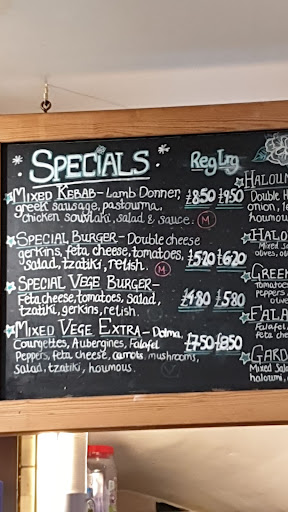 SPECIALS Reg Lrg
MIXED KEBAB - Lamb Donner, £8.50 £9.50
greek sausage, pastourma,
chicken souvlaki, salad & sauce. M
SPECIAL BURGER - Double cheese
gerkins, feta cheese, tomatoes, £5.20 £6.20
salad, tzatiki, relish. M
SPECIAL VEGE BURGER-
Feta cheese, tomatoes, salad, £4.80 £5.80
tzatiki, gerkins, relish.
MIXED VEGE EXTRA - Dolma,
Courgettes, Aubergines, Falafel £7.50 £8.50
Peppers, feta cheese, carrots, mushrooms,
salad, tzatiki, houmous. V
HALOUM
Double H
onion, le
houmou
HALO
Mixed sa
olives, o
GREEK
Tomatoes
peppers
olives
FALA
Falafel
feta che
GARD
Mixed Sala
haloumi,